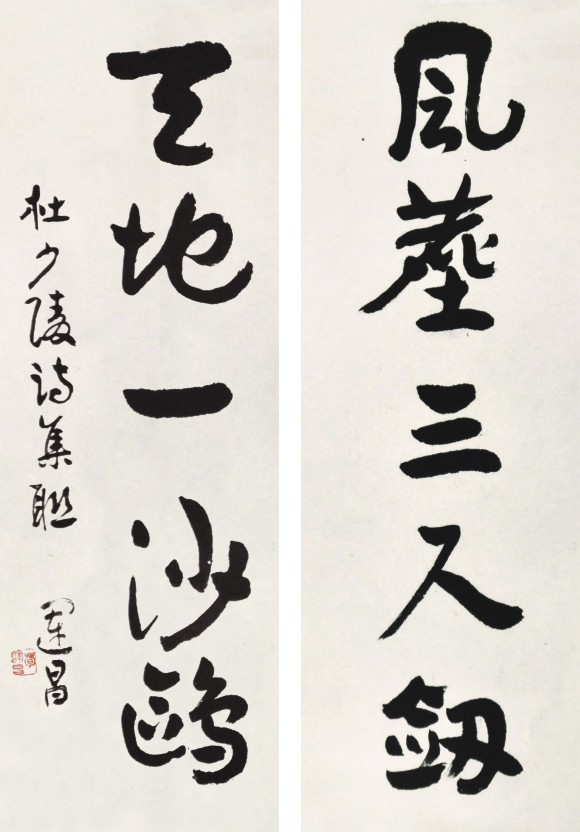 風塵三尺劍
天地一沙鷗
杜少陵詩集聯
昌